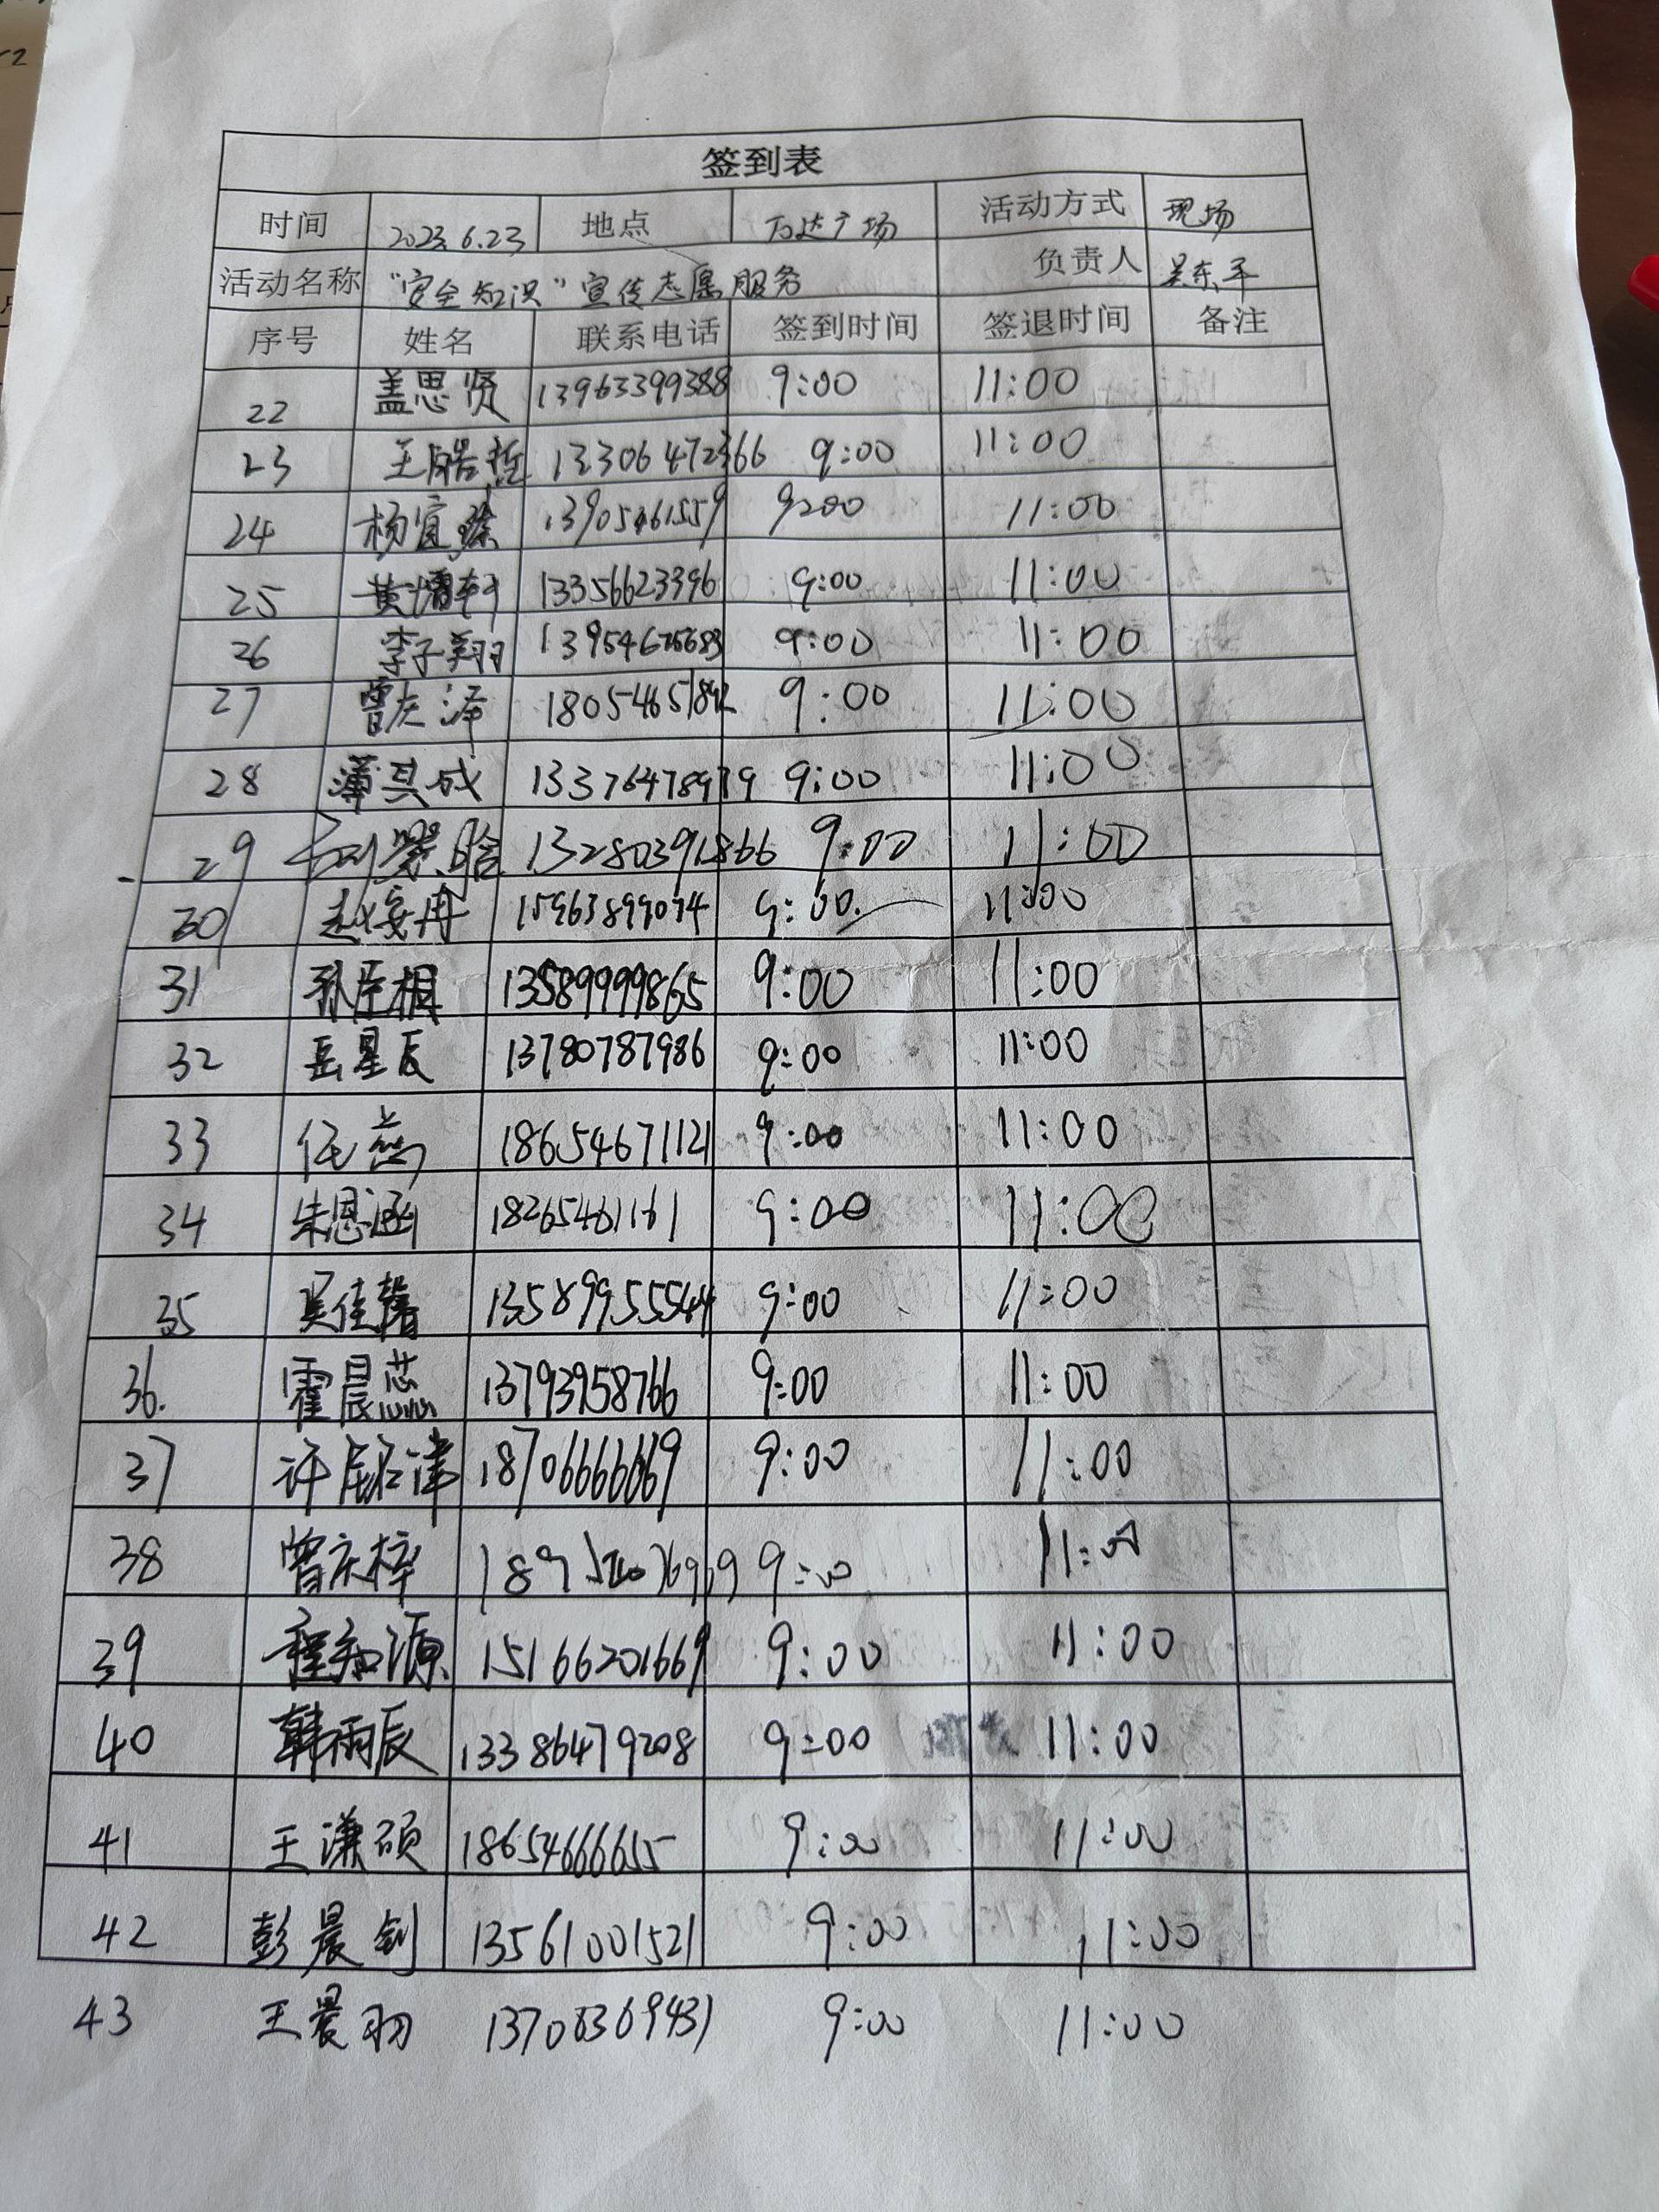 签到表
时间 2023.6.23 地点 万达广场 活动方式 现场
活动名称 “安全知识”宣传志愿服务 负责人 吴东平
序号 姓名 联系电话 签到时间 签退时间 备注
22 盖思贤 13963399388 9:00 11:00
23 王皓哲 13306472366 9:00 11:00
24 杨宜臻 13905461559 9:00 11:00
25 黄墡轩 13356623396 9:00 11:00
26 李子翔 13954675683 9:00 11:00
27 曾庆泽 18054651892 9:00 11:00
28 薄其成 13376478979 9:00 11:00
29 13280391866 9:00 11:00
30 赵安冉 15963899074 9:00 11:00
31 孙臣楫 13589999865 9:00 11:00
32 岳星辰 13780787986 9:00 11:00
33 任燕 18654671121 9:00 11:00
34 朱恩涵 18265461161 9:00 11:00
35 吴佳馨 13589955544 9:00 11:00
36. 霍晨蕊 13793958766 9:00 11:00
37 许宸津 18706666669 9:00 11:00
38 曾庆梓 9:00 11:00
39 程知源 15166201669 9:00 11:00
40 韩雨辰 13386479208 9:00 11:00
41 王谦硕 18654666655 9:00 11:00
42 彭晨钊 13561001521 9:00 11:00
43 王晨羽 13706369431 9:00 11:00